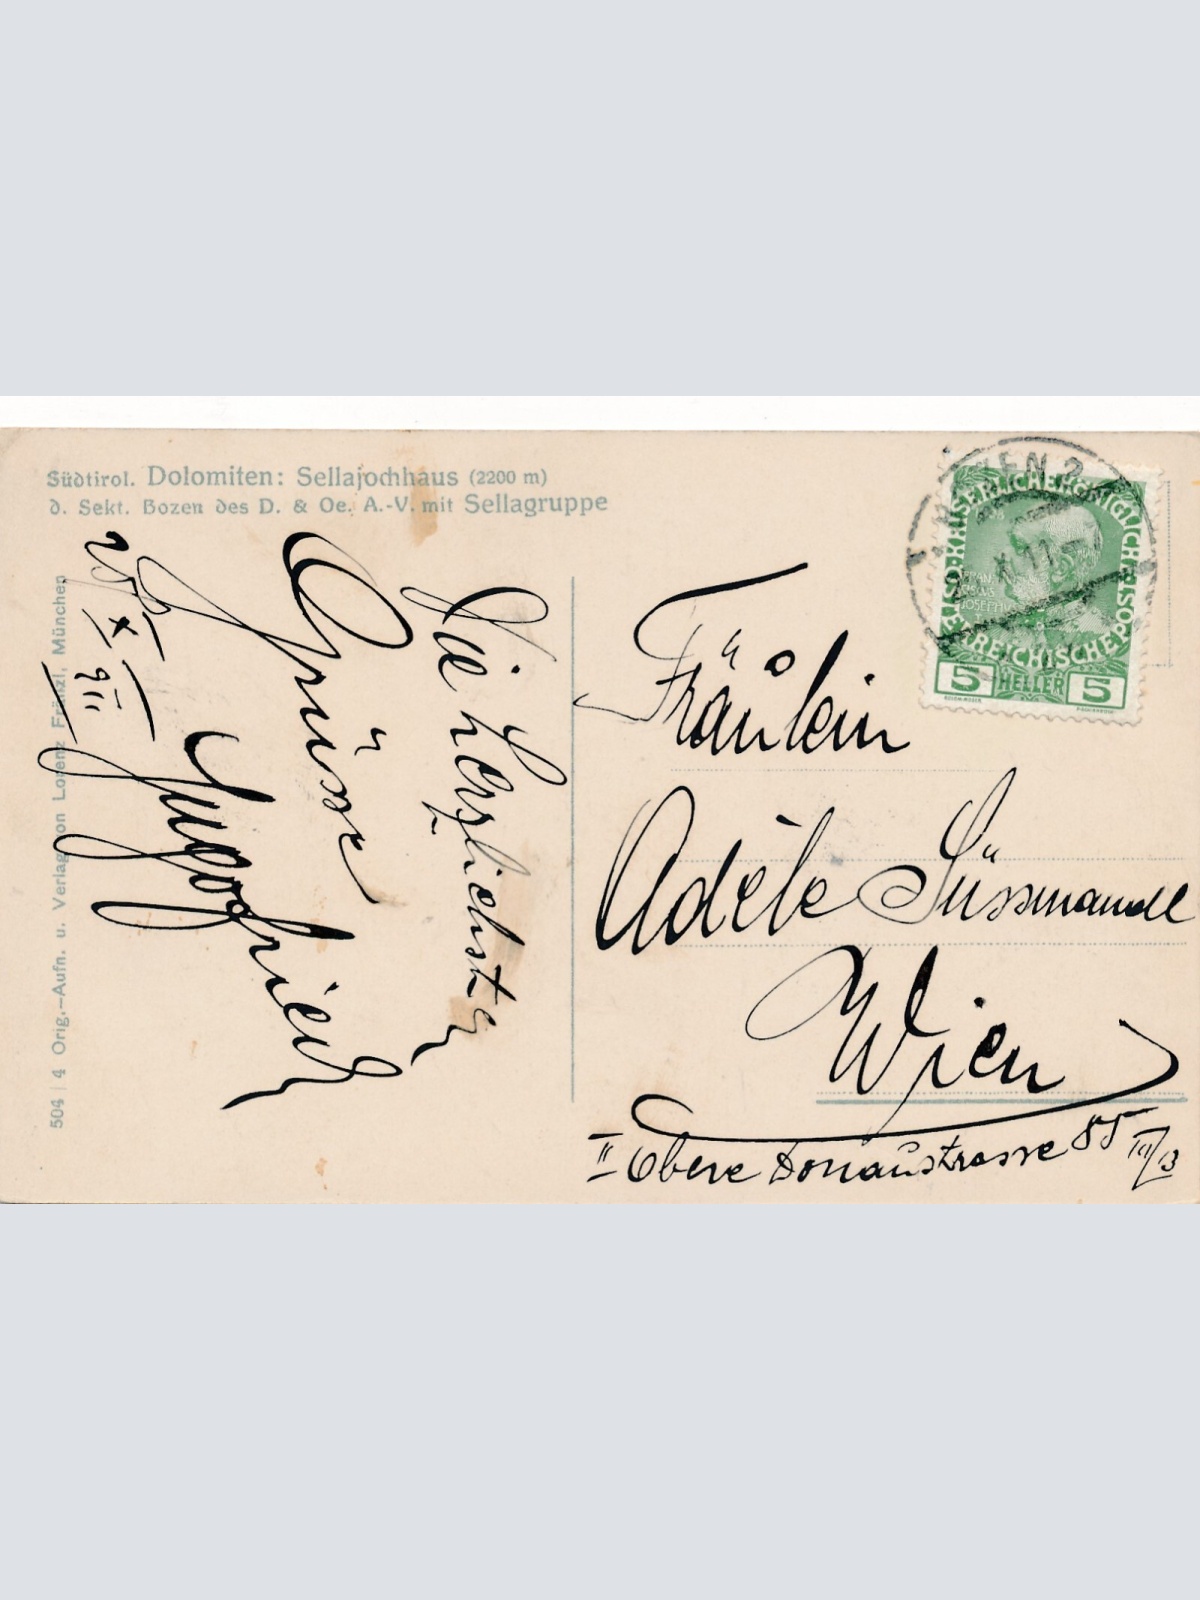 Südtirol. Dolomiten: Sellajochhaus (2200 m)
d. Sekt. Bozen des D. & Oe. A.-V. mit Sellagruppe
Die herzlichsten
Grüsse
Hugo Fried
25/X 911
504 | 4 Orig.-Aufn. u. Verlag von Lorenz Fränzl, München
KAISERLICHE KÖNIGLICHE
ÖSTERREICHISCHE POST
FRANZ
JOSEPH
5 HELLER 5
WIEN 2
X 11
Fräulein
Adéle Süssmandl
Wien
II Obere Donaustrasse 85 III/13